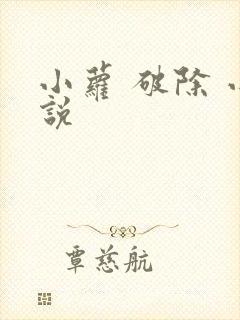 小蘿 破除 小
說
覃慈航